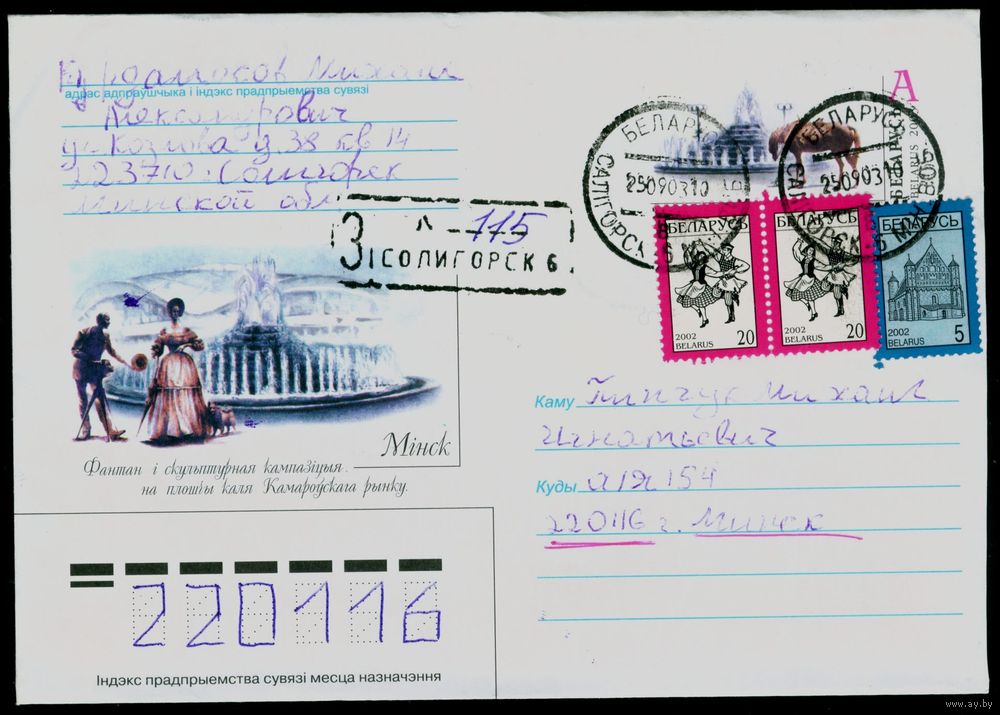 Михаил
адрас адпраўшчыка і індэкс прадпрыемства сувязі
Александрович
ул Козлова д 38 кв 14
223710 Солигорск
Минской обл
З Л 115
СОЛИГОРСК 6
A
БЕЛАРУСЬ
BELARUS
БЕЛАРУСЬ САЛІГОРСК 6
25090310
БЕЛАРУСЬ САЛІГОРСК 6
250903
БЕЛАРУСЬ
2002
BELARUS
20
БЕЛАРУСЬ
2002
BELARUS
20
БЕЛАРУСЬ
2002
BELARUS
5
Мінск
Фантан і скульптурная кампазіцыя
на плошчы каля Камароўскага рынку.
Каму Пинчук Михаил
Игнатьевич
Куды а/я 154
220116 г. Минск
220116
Індэкс прадпрыемства сувязі месца назначэння
www.ay.by